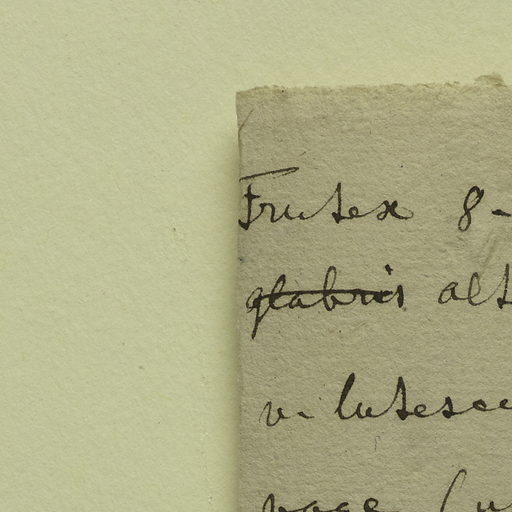 Frutex 8-
glabris alt
v. lutesce